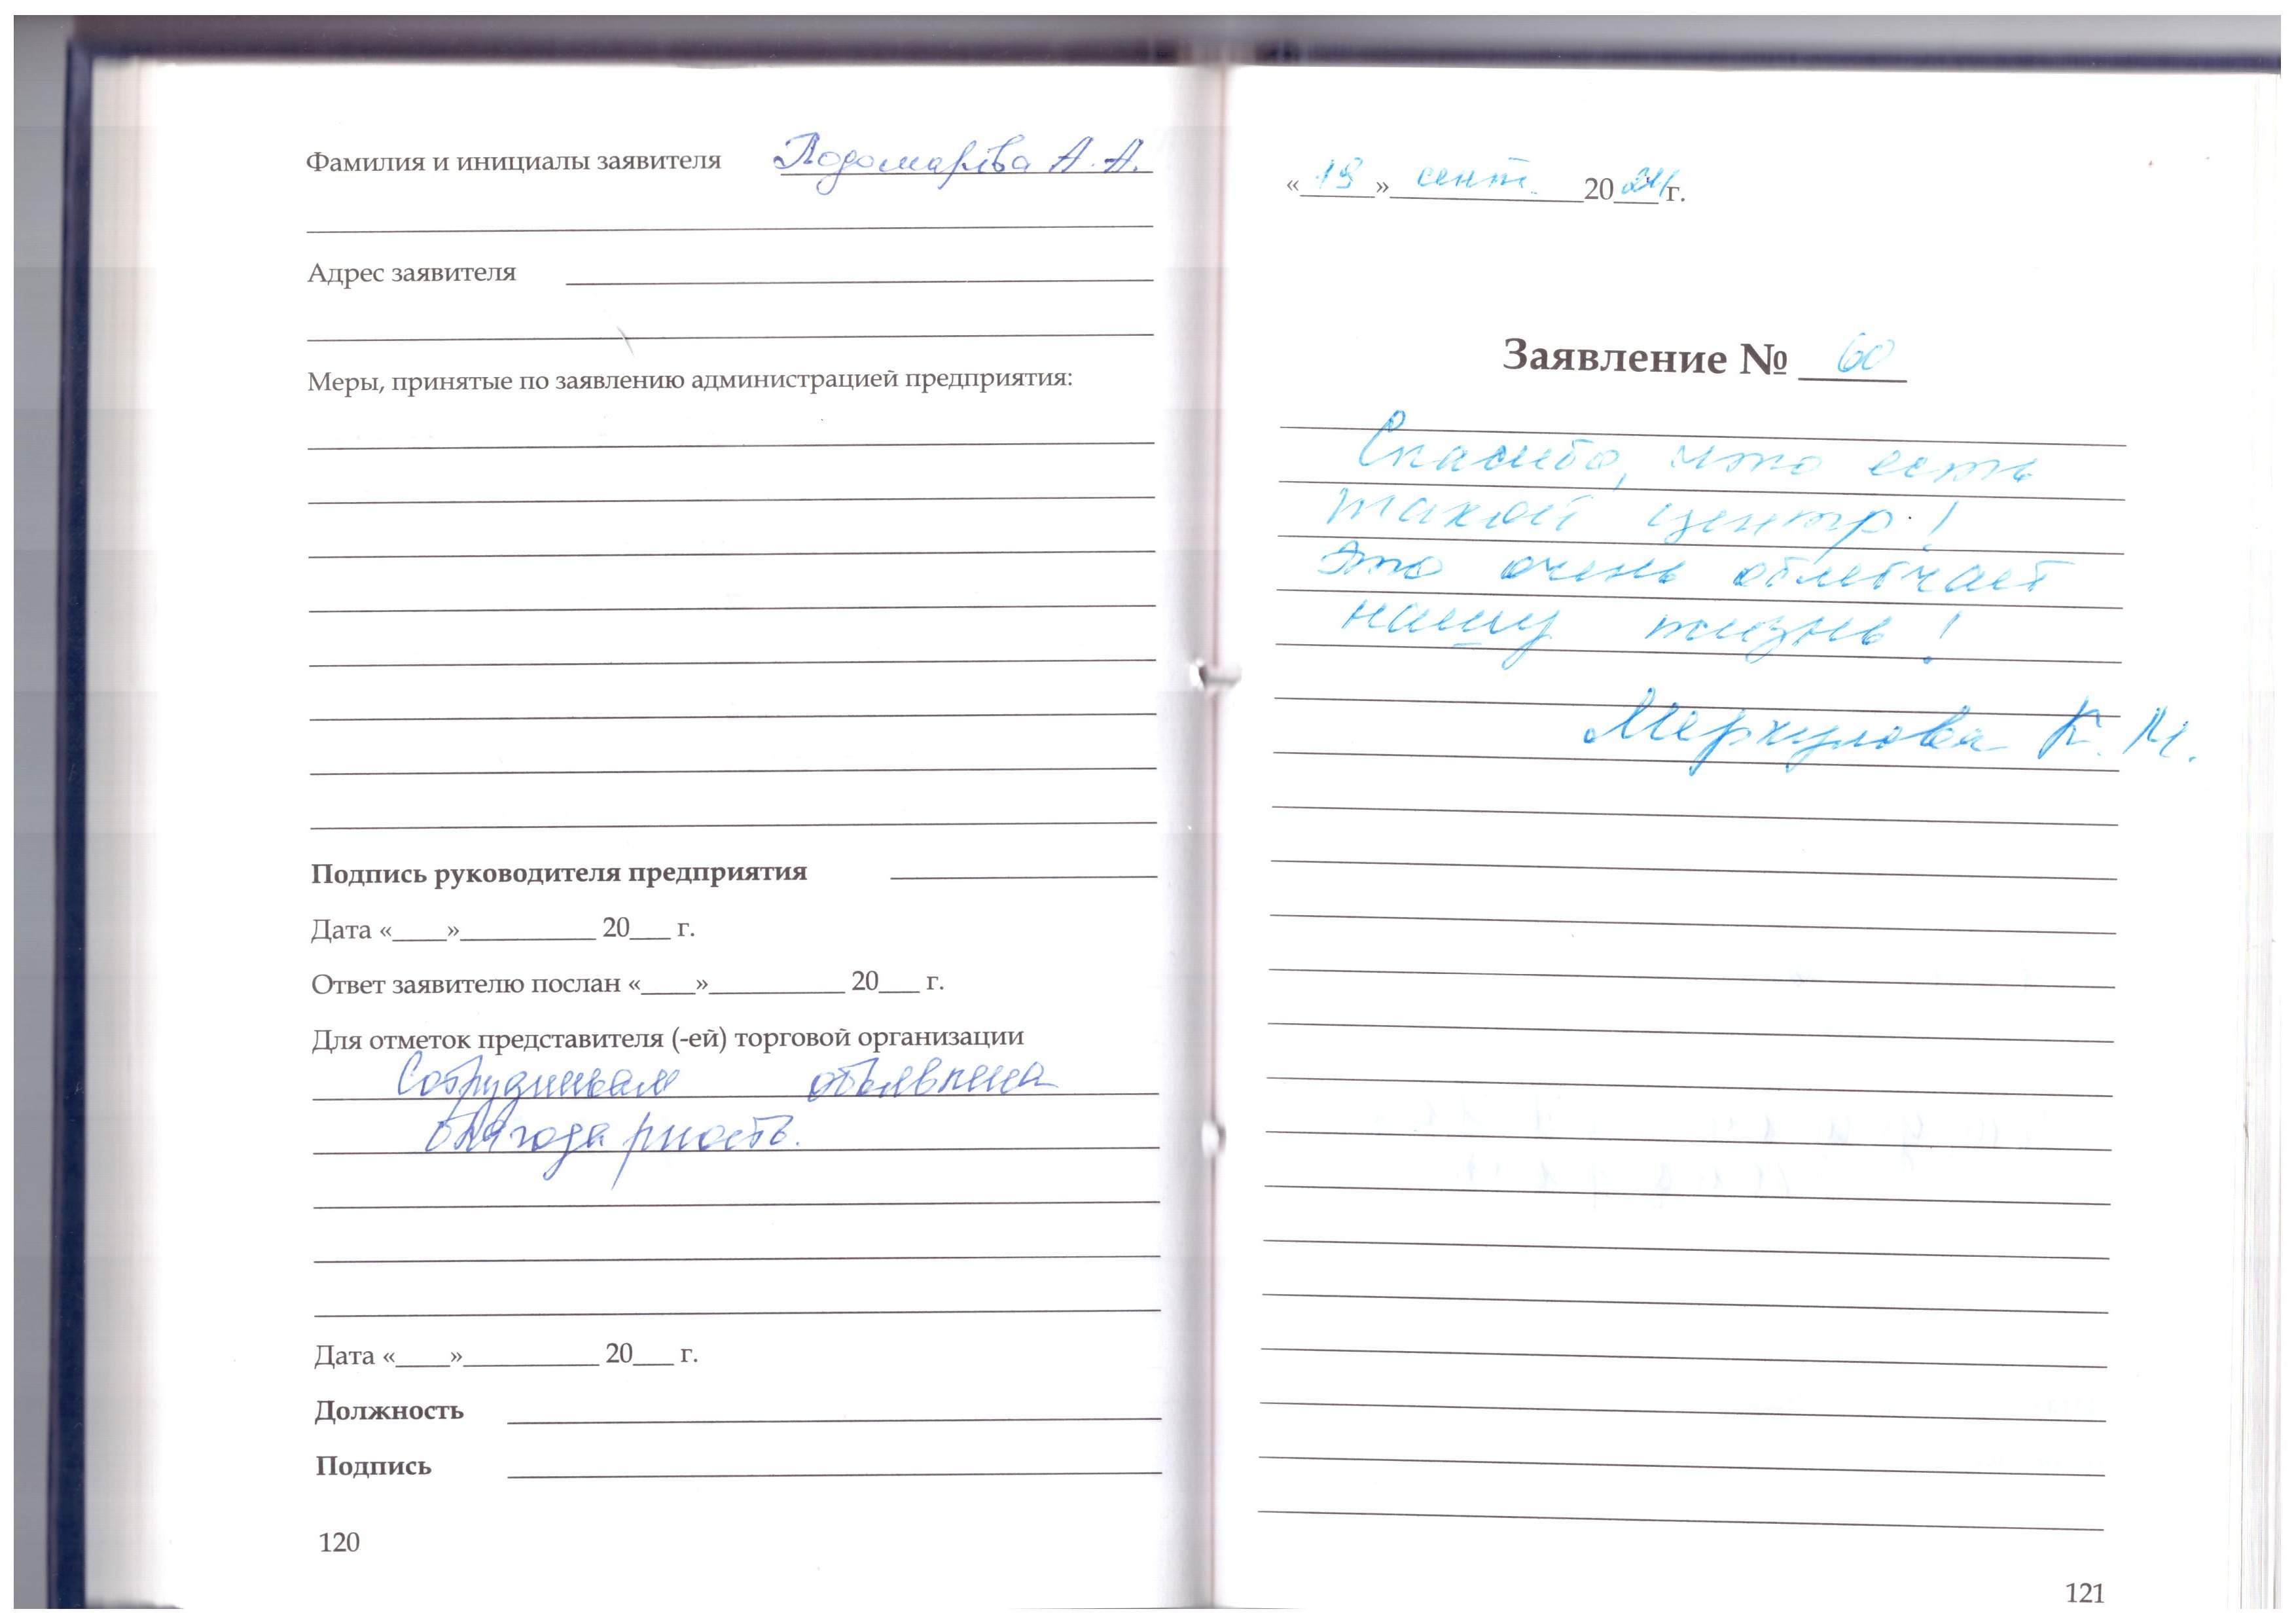 Фамилия и инициалы заявителя А. А.
Адрес заявителя
Меры, принятые по заявлению администрацией предприятия:
Подпись руководителя предприятия
Дата «____»__________ 20___ г.
Ответ заявителю послан «____»__________ 20___ г.
Для отметок представителя (-ей) торговой организации
Сотрудникам объявлена
благодарность.
Дата «____»__________ 20___ г.
Должность
Подпись
120
«19» сент. 2024 г.
Заявление № 60
Спасибо, что есть
такой центр!
Это очень облегчает
нашу жизнь!
Меркулова К. М.
121